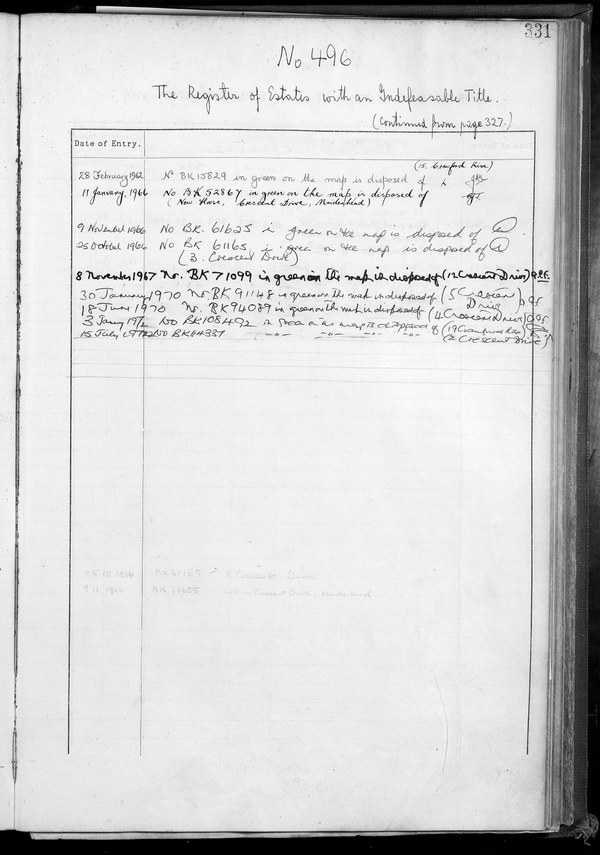 331
No 496
The Register of Estates with an Indefeasable Title.
(Continued from page 327.)
Date of Entry.
28 February 1962 No BK 15829 in green on the map is disposed of
11 January, 1966 No BK 52867 in green on the map is disposed of
(New House, Crescent Drive, Maidenhead)
9 November 1966 No BK. 61625 in green on the map is disposed of
25 October 1966 No BK 61165 in green on the map is disposed of
(3. Crescent Drive)
8 November 1967 No. BK 71099 in green on the map is disposed of (12 Crescent Drive)
30 January 1970 No. BK 91148 in green on the map is disposed of (5 Crescent Drive)
18 June 1970 No. BK 94089 in green on the map is disposed of (4 Crescent Drive)
3 Jany 1972 No BK 108492 in green on the map is disposed of
15 July, 1972 No BK 64387 -"- -"- -"- -"- (2 Crescent Drive)
25 10 1966 BK 61165 Crescent Drive
9 11 1966 BK 61625 Crescent Drive, Maidenhead